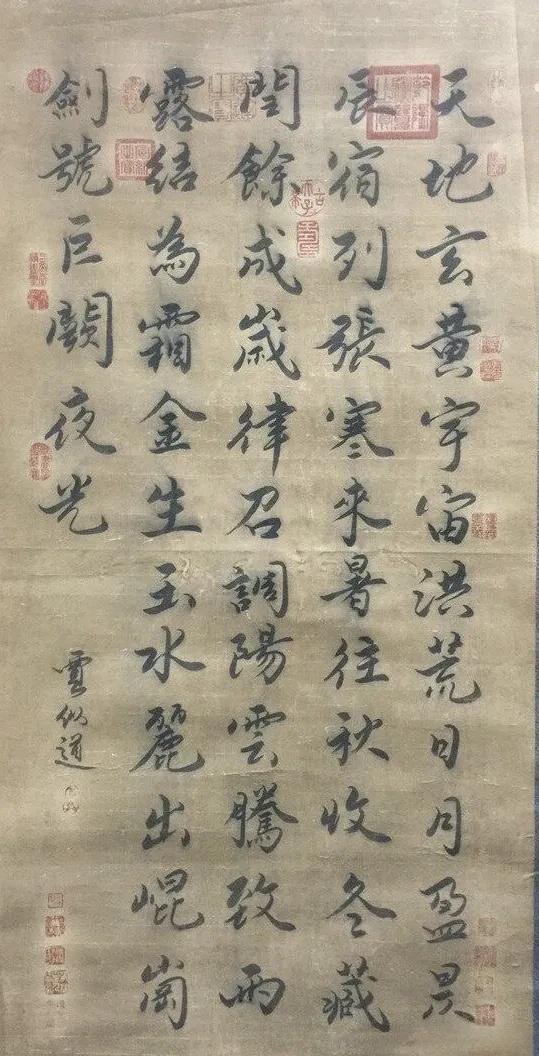 天地玄黃宇宙洪荒日月盈昃
辰宿列張寒來暑往秋收冬藏
閏餘成歲律召調陽雲騰致雨
露結為霜金生玉水麗出崐崗
劍號巨闕夜光